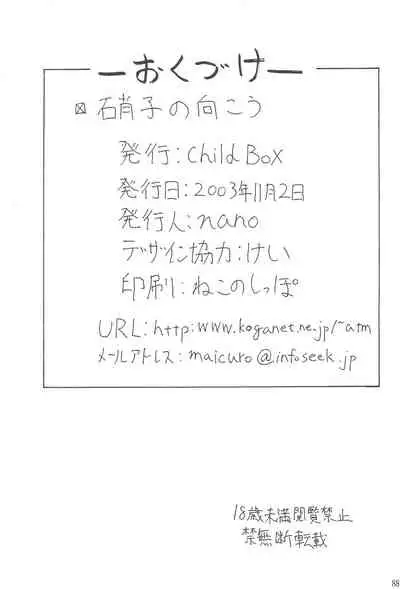 おくづけ
硝子の向こう
発行:Child Box
発行日:2003年11月2日
発行人:nano
デザイン協力:けい
印刷:ねこのしっぽ
URL:http:www.koganet.ne.jp/~atm
メールアドレス:maicuro@infoseek.jp
18歳未満閲覧禁止
禁無断転載
88